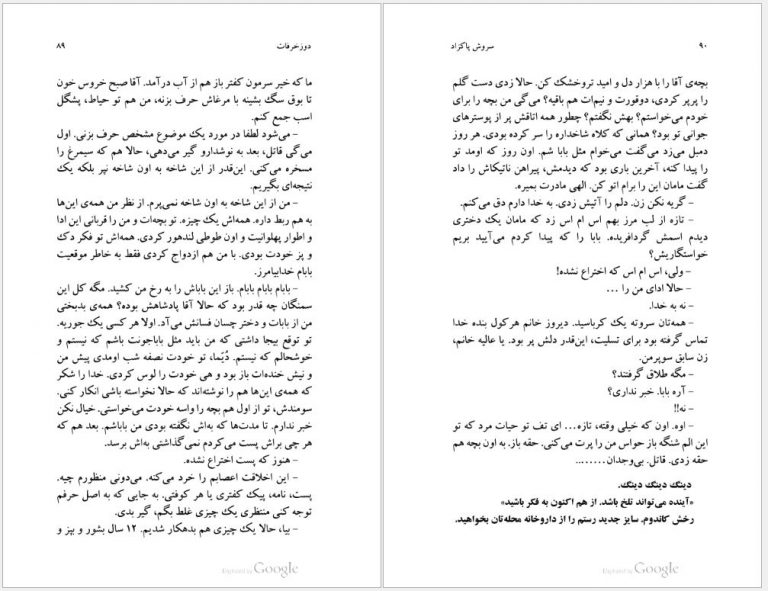 دوزخرفات	۸۹
ما که خیر سرمون کفتر باز هم از آب درآمد. آقا صبح خروس خون
تا بوق سگ بشینه با مرغاش حرف بزنه، من هم تو حیاط، پشگل
اسب جمع کنم.
– می‌شود لطفا در مورد یک موضوع مشخص حرف بزنی. اول
می‌گی قاتل، بعد به نوشدارو گیر می‌دهی، حالا هم که سیمرغ را
مسخره می‌کنی. این‌قدر از این شاخه به اون شاخه نپر بلکه یک
نتیجه‌ای بگیریم.
– من از این شاخه به اون شاخه نمی‌پرم. از نظر من همه‌ی این‌ها
به هم ربط داره. همه‌اش یک چیزه. تو بچه‌ات و من را قربانی این ادا
و اطوار پهلوانیت و اون طوطی لندهور کردی. همه‌اش تو فکر دک
و پز خودت بودی. با من هم ازدواج کردی فقط به خاطر موقعیت
بابام خدابیامرز.
– بابام بابام بابام. باز این باباش را به رخ من کشید. مگه کل این
سمنگان چه قدر بود که حالا آقا پادشاهش بوده؟ همه‌ی بدبختی
من از بابات و دختر چسان فسانش می‌آد. اولا هر کسی یک جوریه.
تو توقع بیجا داشتی که من باید مثل باباجونت باشم که نیستم و
خوشحالم که نیستم. دُیّما، تو خودت نصفه شب اومدی پیش من
و نیش خنده‌ات باز بود و هی خودت را لوس کردی. خدا را شکر
که همه‌ی این‌ها هم را نوشته‌اند که حالا نخواسته باشی انکار کنی.
سومندش، تو از اول هم بچه را واسه خودت می‌خواستی. خیال نکن
خبر ندارم. تا مدت‌ها که به‌اش نگفته بودی من باباشم. بعد هم که
هر چی براش پست می‌کردم نمی‌گذاشتی به‌اش برسد.
– هنوز که پست اختراع نشده.
– این اخلاقت اعصابم را خرد می‌کنه. می‌دونی منظورم چیه.
پست، نامه، پیک کفتری یا هر کوفتی. به جایی که به اصل حرفم
توجه کنی منتظری یک چیزی غلط بگم، گیر بدی.
– بیا، حالا یک چیزی هم بدهکار شدیم. ۱۲ سال بشور و بپز و
Digitized by Google
۹۰	سروش پاکزاد
بچه‌ی آقا را با هزار دل و امید تروخشک کن. حالا زدی دست گلم
را پرپر کردی، دوقورت و نیم‌ات هم باقیه؟ می‌گی من بچه را برای
خودم می‌خواستم؟ بهش نگفتم؟ چطور همه اتاقش پر از پوسترهای
جوانی تو بود؟ همانی که کلاه شاخداره را سر کرده بودی. هر روز
دمبل می‌زد می‌گفت می‌خوام مثل بابا شم. اون روز که اومد تو
را پیدا کنه، آخرین باری بود که دیدمش، پیراهن ناتیکاش را داد
گفت مامان این را برام اتو کن. الهی مادرت بمیره.
– گریه نکن زن. دلم را آتیش زدی. به خدا دارم دق می‌کنم.
– تازه از لب مرز بهم اس ام اس زد که مامان یک دختری
دیدم اسمش گردآفریده. بابا را که پیدا کردم می‌آیید بریم
خواستگاریش؟
– ولی، اس ام اس که اختراع نشده!
– حالا ادای من را ...
– نه به خدا.
– همه‌تان سروته یک کرباسید. دیروز خانم هرکول بنده خدا
تماس گرفته بود برای تسلیت، این‌قدر دلش پر بود. یا عالیه خانم،
زن سابق سوپرمن.
– مگه طلاق گرفتند؟
– آره بابا. خبر نداری؟
– نه!!
– اوه. اون که خیلی وقته، تازه... ای تف تو حیات مرد که تو
این الم شنگه باز حواس من را پرت می‌کنی. حقه باز. به اون بچه هم
حقه زدی. قاتل. بی‌وجدان........
دینگ دینگ دینگ.
«آینده می‌تواند تلخ باشد. از هم اکنون به فکر باشید»
رخش کاندوم. سایز جدید رستم را از داروخانه محله‌تان بخواهید.
Digitized by Google